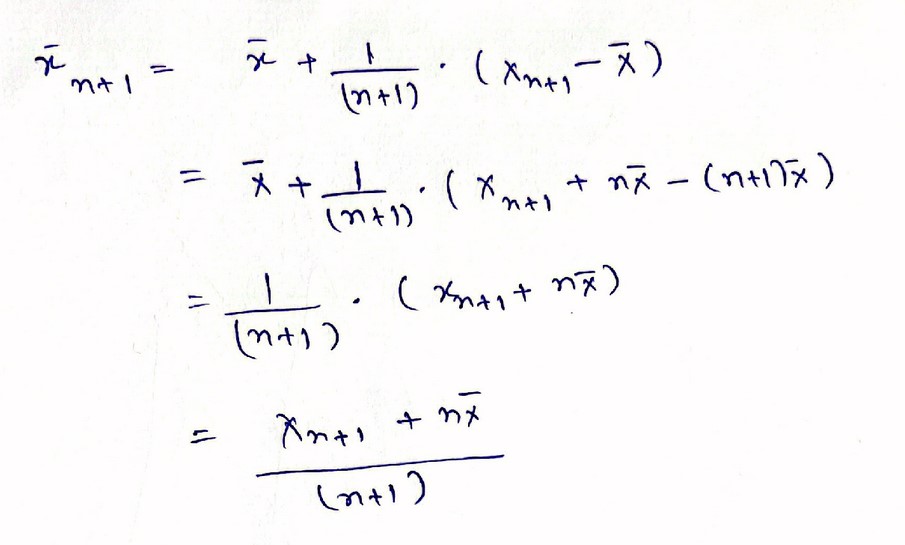 x̄ₙ₊₁ = x̄ + 1/(n+1) · (xₙ₊₁ - x̄)
= x̄ + 1/(n+1) · (xₙ₊₁ + nx̄ - (n+1)x̄)
= 1/(n+1) · (xₙ₊₁ + nx̄)
= xₙ₊₁ + nx̄ / (n+1)